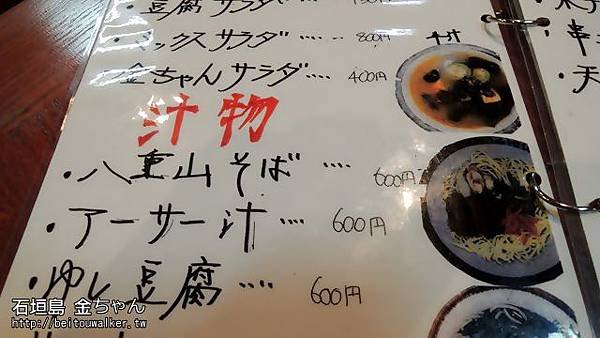 ・豆腐サラダ
ックスサラダ‥‥800円
金ちゃんサラダ‥‥400円
汁物
・八重山そば‥‥600円
・アーサー汁‥‥600円
・ゆし豆腐‥‥600円
石垣島 金ちゃん
http://beitouwalker.tw